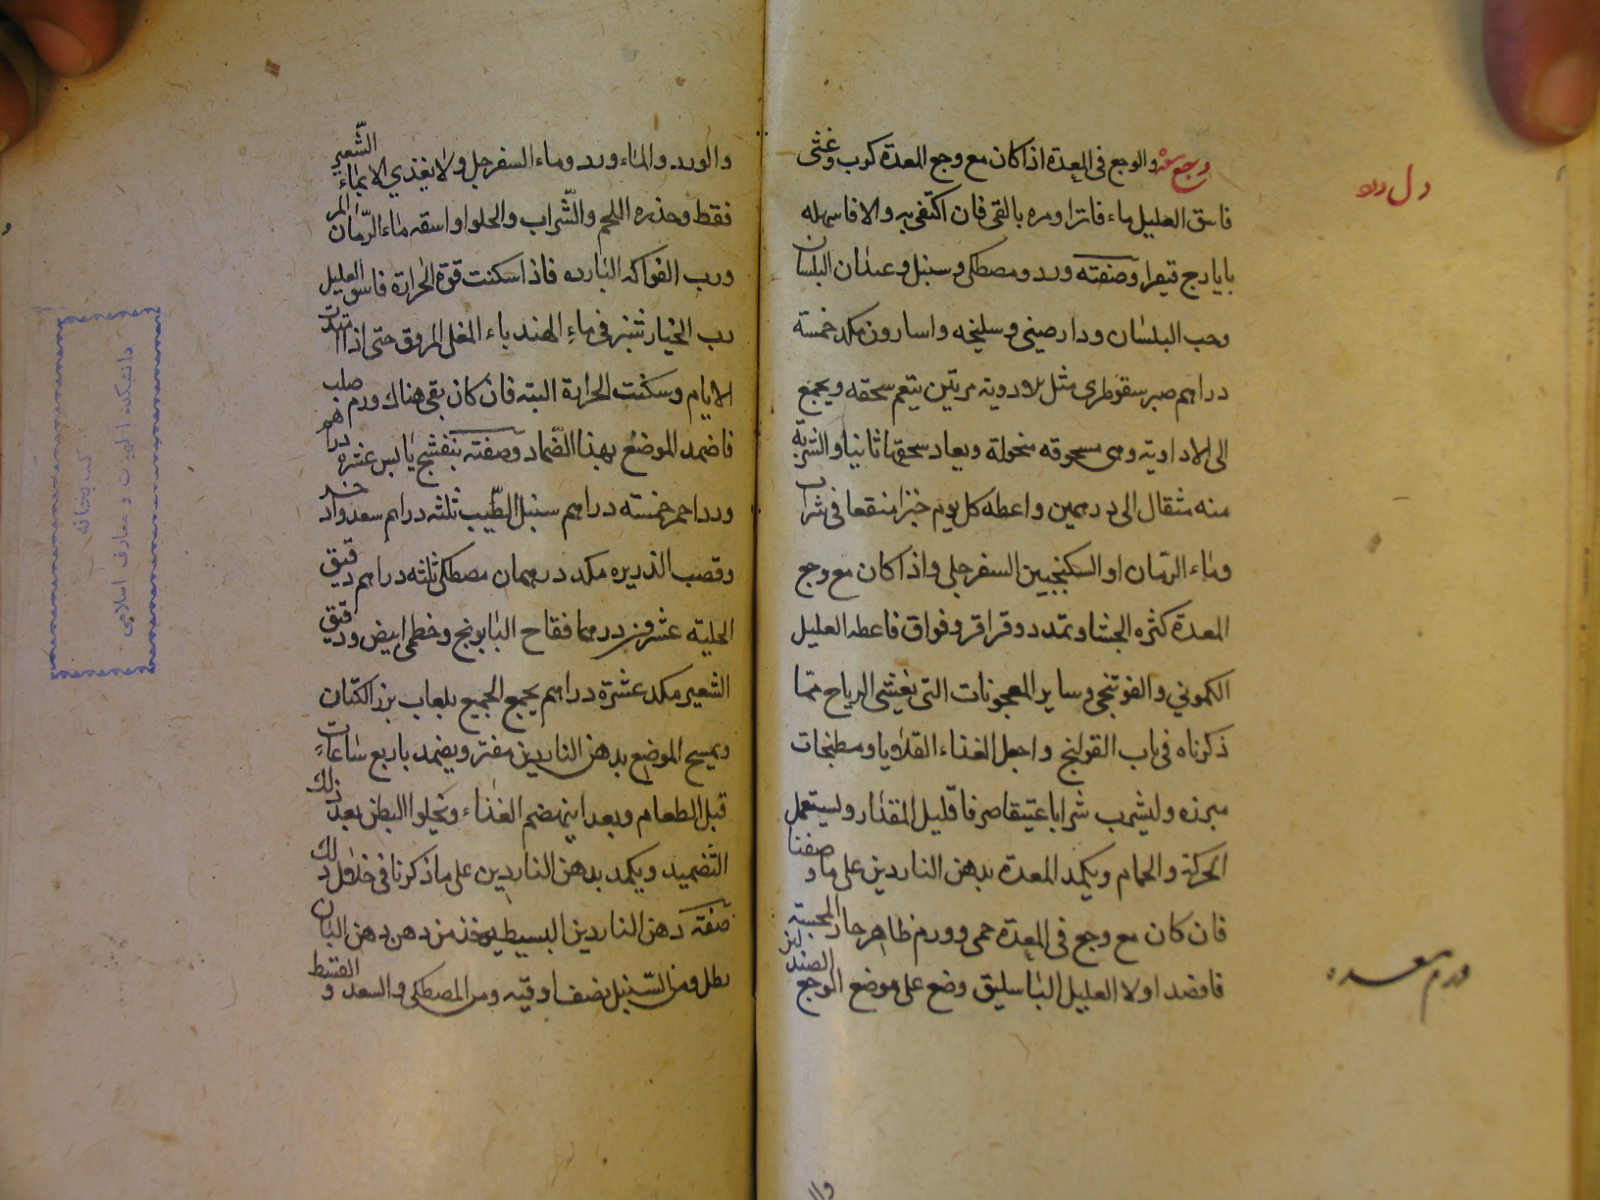 وجع معده والوجع فى المعدة اذا كان مع وجع المعدة كرب وغثى
دل درد
فاسق العليل ماء فاترا ومره بالقى فان اكتفى به والا فاسهله
بايارج فيقرا وصفته ورد ومصطكى وسنبل وعيدان البلسان
وحب البلسان ودارصينى وسليخه واسارون مكد خمسته
دراهم صبر سقوطرى مثل الادويته مرتين ينعم سحقه ويجمع
الى الاداويته وهى مسحوقه منخولة ويعاد سحقها ثانيا والشربة
منه مثقال الى درهمين واعطه كل يوم خبزا منقعا فى شراب
وماء الرمان او السكنجبين السفرجلى واذا كان مع وجع
المعدة كثره الجشا وتمدد وقراقر وفواق فاعطه العليل
الكمونى والفوتنجى وساير المعجونات التى تفشى الرياح مما
ذكرناه فى باب القولنج واجعل الغذاء القلايا ومطنجات
مبرزه وليشرب شرابا عتيقا صرفا قليل المقدار وليستعمل
الحركة والحمام ويكمد المعدة بدهن الناردين على ما وصفنا
فان كان مع وجع فى المعدة حمى وورم ظاهر حار المجسته
ورم معده
فافصد اولا العليل الباسليق وضع على موضع الوجع الصندلين
والورد والماء ورد وماء السفرجل ولا يغذي الا بماء الشعير
فقط وحذره اللحم والشراب والحلوا واسقه ماء الرمان المر
ورب الفواكه البارده فاذا سكنت قوة الحرارة فاسق العليل
رب الخيار شنبر فى ماء الهندباء المغلى المروق حتى اذا تمت
الايام وسكنت الحرارة البته فان كان بقى هناك ورم صلب
فاضمد الموضع بهذا الضماد وصفته بنفشج يابس عشره دراهم
ورد احمر خمسته دراهم سنبل الطيب ثلثه دراهم سعد واذخر
وقصب الذريره مكد درهمان مصطكى ثلثه دراهم دقيق
الحلبته عشرون درهما فقاح البابونج وخطمى ابيض ودقيق
الشعير مكد عشرة دراهم يجمع الجميع بلعاب بزر الكتان
ويمسح الموضع بدهن الناردين مفتر ويضمد باربع ساعات
قبل الطعام وبعد اينهضم الغذاء وتخلوا البطن بعد ذلك
التضميد ويكمد بدهن الناردين على ما ذكرنا فى خلال ذلك
صفته دهن الناردين البسيط يوخذ من دهن دهن البان
رطل ومن السنبل نصف اوقيه ومن المصطكى والسعد والقسط
كتابخانه
دانشكده الهيات و معارف اسلامى